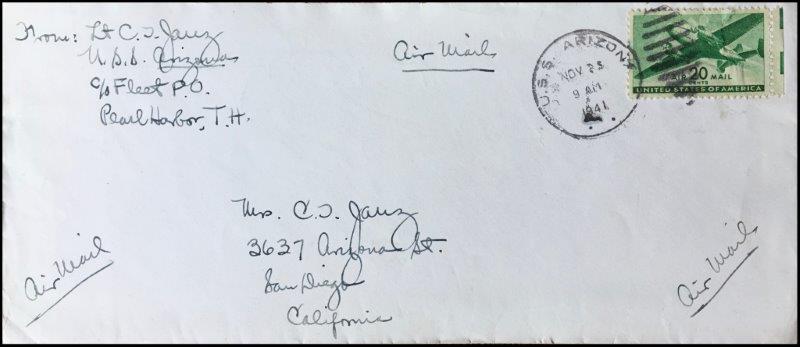 From: Lt C.T. Janz
U.S.S. Arizona
c/o Fleet P.O.
Pearl Harbor, T.H.
Air Mail
U.S.S. ARIZONA
NOV 25
9 AM
1941
AIR 20 MAIL
CENTS
UNITED STATES OF AMERICA
Mrs. C.T. Janz
3637 Arizona St.
San Diego
California
Air Mail
Air Mail